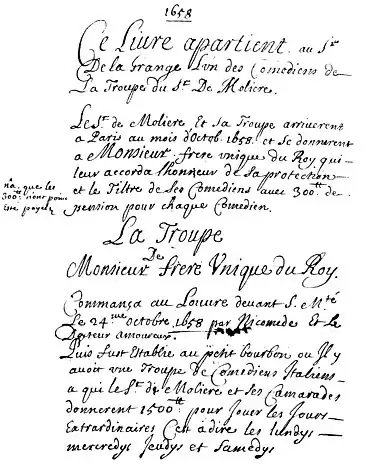 1658
Ce Liure apartient au Sr
De la Grange L'vn des Comediens de
La Troupe du Sr. De Moliere.
Le Sr. de Moliere Et sa Troupe arriuerent
a Paris au mois d'octob. 1658. et se donnerent
a Monsieur frere vnique du Roy qui
leur accorda l'honneur de sa protection
et le Tiltre de ses Comediens auec 300tt. de
pension pour chaque Comedien.
na. que les
300tt. n'ont point
esté payez
La Troupe
De
Monsieur frere Vnique du Roy.
Commança au Louure deuant S. Mté
le 24me octobre 1658 par Nicomede Et le
Docteur amoureux.
Puis fust Establie au petit bourbon ou Il y
auoit vne Troupe de Comediens Italiens
a qui le Sr. de Moliere et ses Camarades
donnerent 1500tt. pour Jouer les Jours
Extraordinaires Cest a dire les lundys
mercredys Jeudys et Samedys